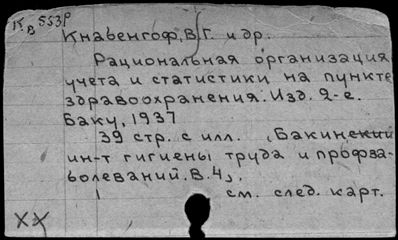 К.в 553р
Кнавенгоф, В.Г. и др.
Рациональная организация
учета и статистики на пункте
здравоохранения. Изд. 2-е.
Баку, 1937
39 стр. с илл. (Бакинский
ин-т гигиены труда и профза-
болеваний. В.4).
см. след. карт.
XX